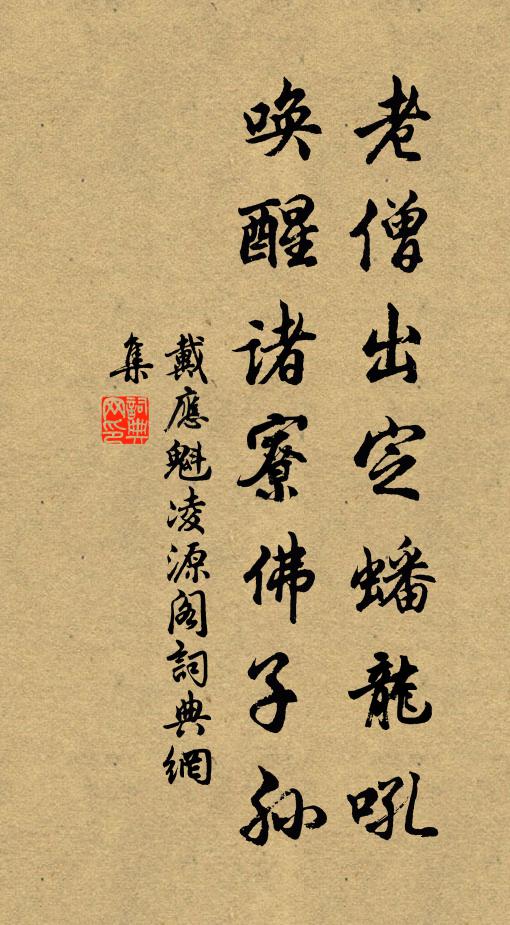 老僧出定蟠龍吼
喚醒諸寮佛子孫
戴應魁凌源閣詞典網
集
詞典
网印